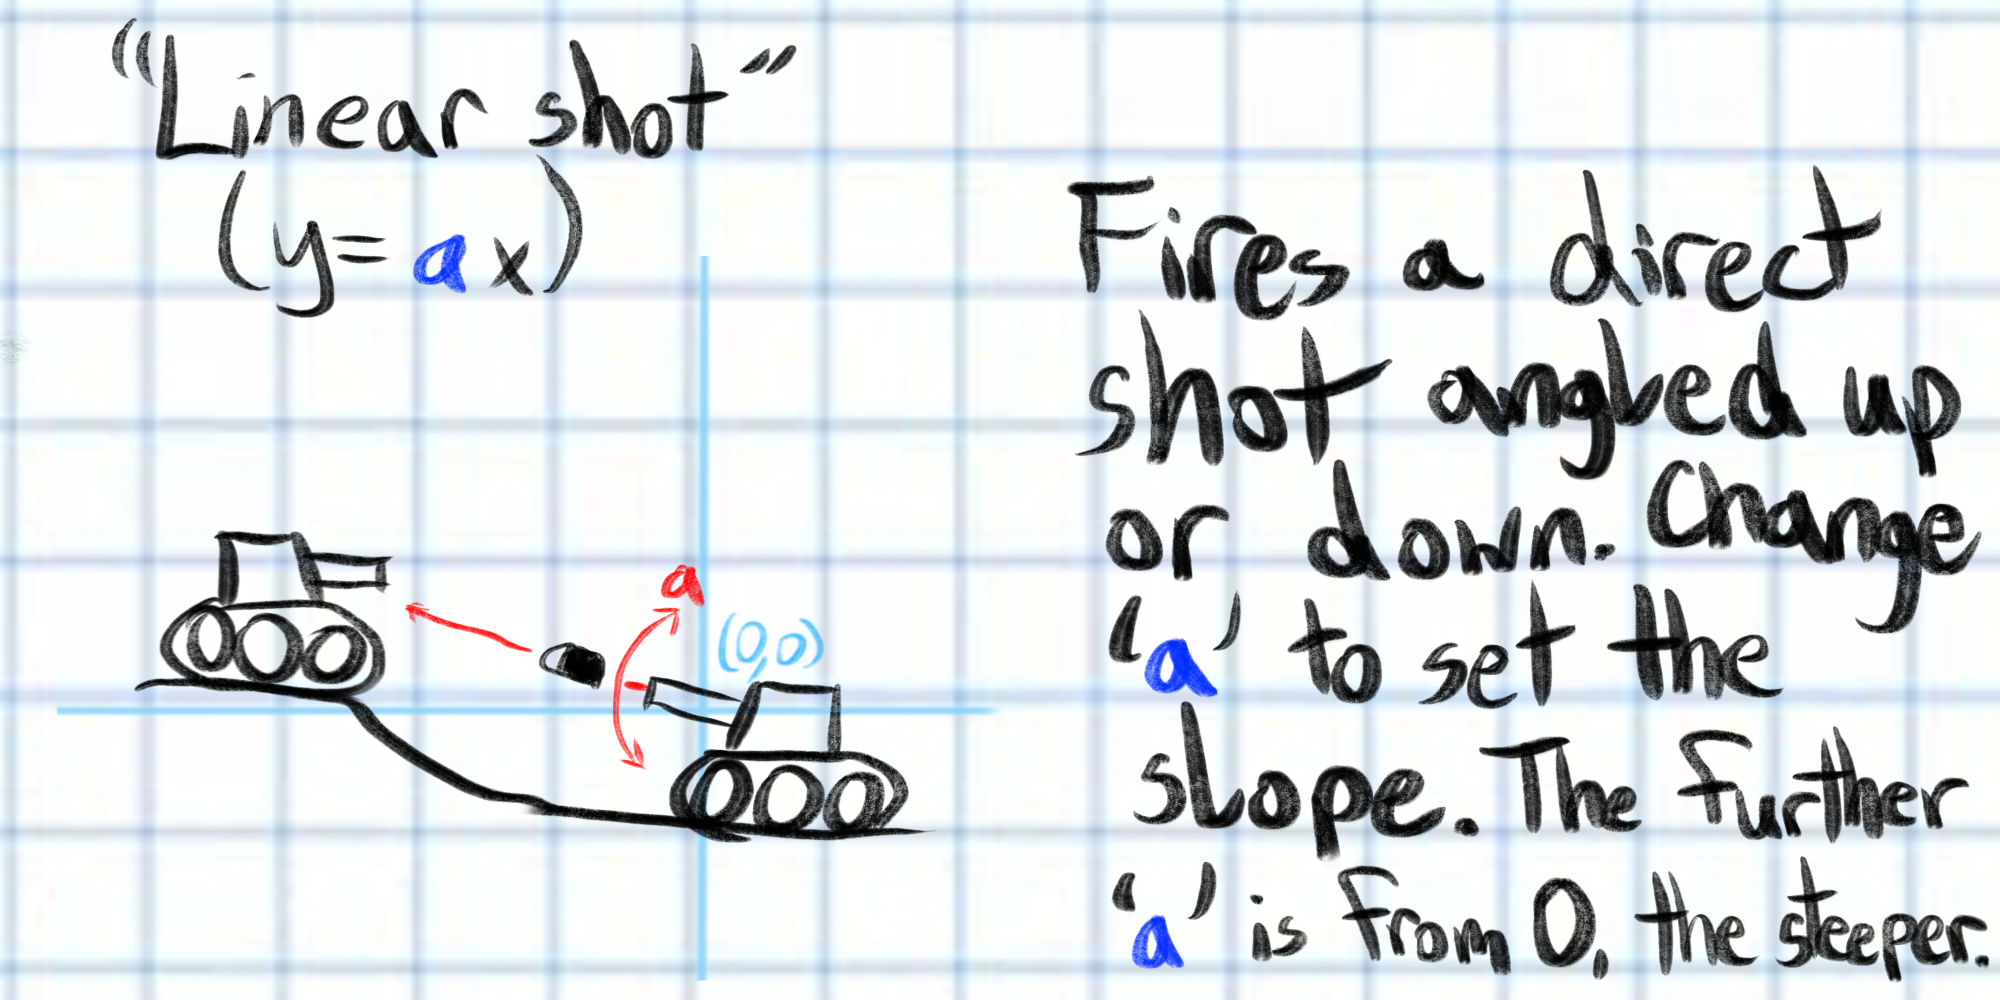 "Linear shot"
(y=ax)
Fires a direct
shot angled up
or down. Change
'a' to set the
slope. The further
'a' is from 0, the steeper.
a
(0,0)